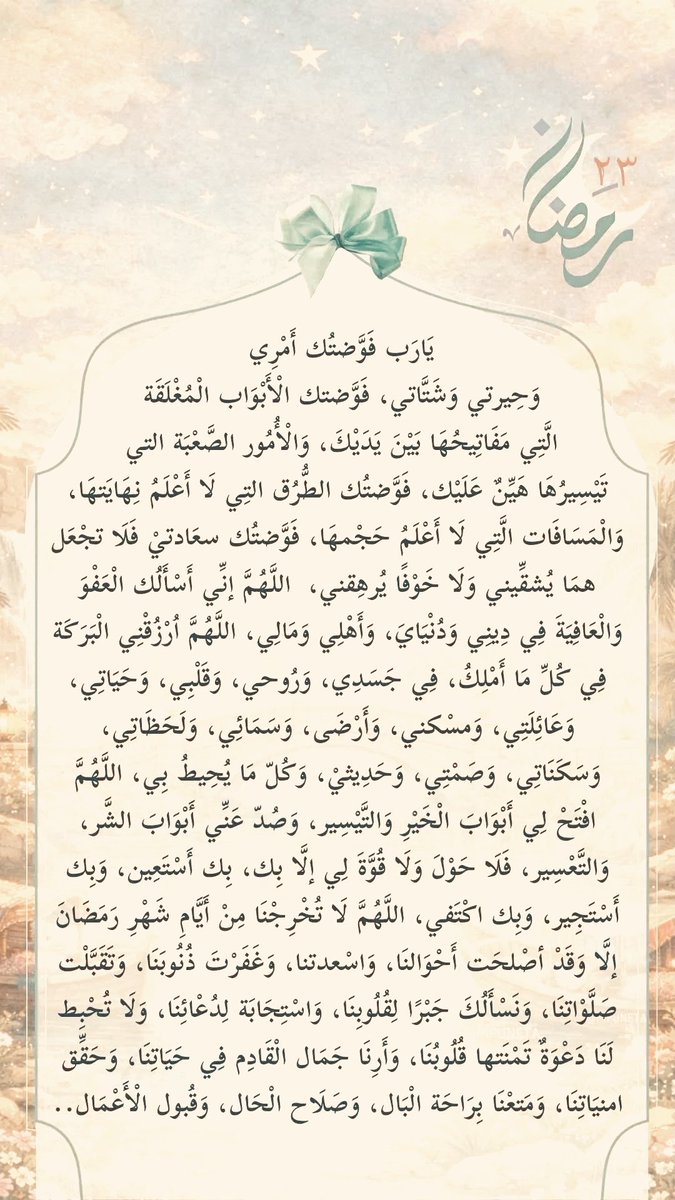 ٢٣
رمضان
يَارَب فَوَّضتُك أَمْرِي
وَحِيرتي وَشَتَّاتي، فَوَّضتك الْأَبْوَاب الْمُغْلَقَة
الَّتِي مَفَاتِيحُهَا بَيْنَ يَدَيْكَ، وَالْأُمُور الصَّعْبَة التي
تَيْسِيرُهَا هَيِّنٌ عَلَيْك، فَوَّضتُك الطُّرُق التِي لَا أَعْلَمُ نِهَايَتهَا،
وَالْمَسَافَات الَّتِي لَا أَعْلَمُ حَجْمهَا، فَوَّضتُك سعَادتيْ فَلَا تجْعَل
همَا يُشقِّيني وَلَا خَوْفًا يُرهِقني، اللَّهُمَّ إنِّي أَسْأَلُك الْعَفْوَ
وَالْعَافِيَةَ فِي دِينِي وَدُنْيَايَ، وَأَهْلِي وَمَالِي، اللَّهُمَّ اُرْزُقْنِي الْبَرَكَة
فِي كُلِّ مَا أَمْلِكُ، فِي جَسَدِي، وَرُوحي، وَقَلْبِي، وَحَيَاتِي،
وَعَائِلَتِي، وَمسْكني، وَأَرْضَى، وَسَمَائِي، وَلَحَظَاتِي،
وَسَكَنَاتِي، وَصَمْتِي، وَحَدِيثيْ، وَكُلّ مَا يُحِيطُ بِي، اللَّهُمَّ
افْتَحْ لِي أَبْوَابَ الْخَيْرِ وَالتَّيْسِير، وَصُدّ عَنِّي أَبْوَابَ الشَّر،
وَالتَّعْسِير، فَلَا حَوْلَ وَلَا قُوَّةَ لِي إلَّا بِك، بِك أَسْتَعِين، وَبِك
أَسْتَجِير، وَبِك اكْتَفي، اللَّهُمَّ لَا تُخْرِجْنَا مِنْ أَيَّامِ شَهْرِ رَمَضَانَ
إلَّا وَقَدْ أصْلحَت أَحْوَالنَا، وَاسْعدتنا، وَغَفَرْتَ ذُنُوبَنَا، وَتَقَبَّلْت
صَلَّوْاتِنَا، وَنَسْأَلُكَ جَبْرًا لِقُلُوبِنَا، وَاسْتِجَابَة لِدُعْائِنَا، وَلَا تُحْبِط
لَنَا دَعْوَةٌ تَمْنَتها قُلُوبُنَا، وَأَرِنَا جَمَال الْقَادِم فِي حَيَاتِنَا، وَحَقِّق
امنيَاتِنَا، وَمَتعْنَا بِرَاحَة الْبَال، وَصَلَاح الْحَال، وَقُبول الْأَعْمَال..